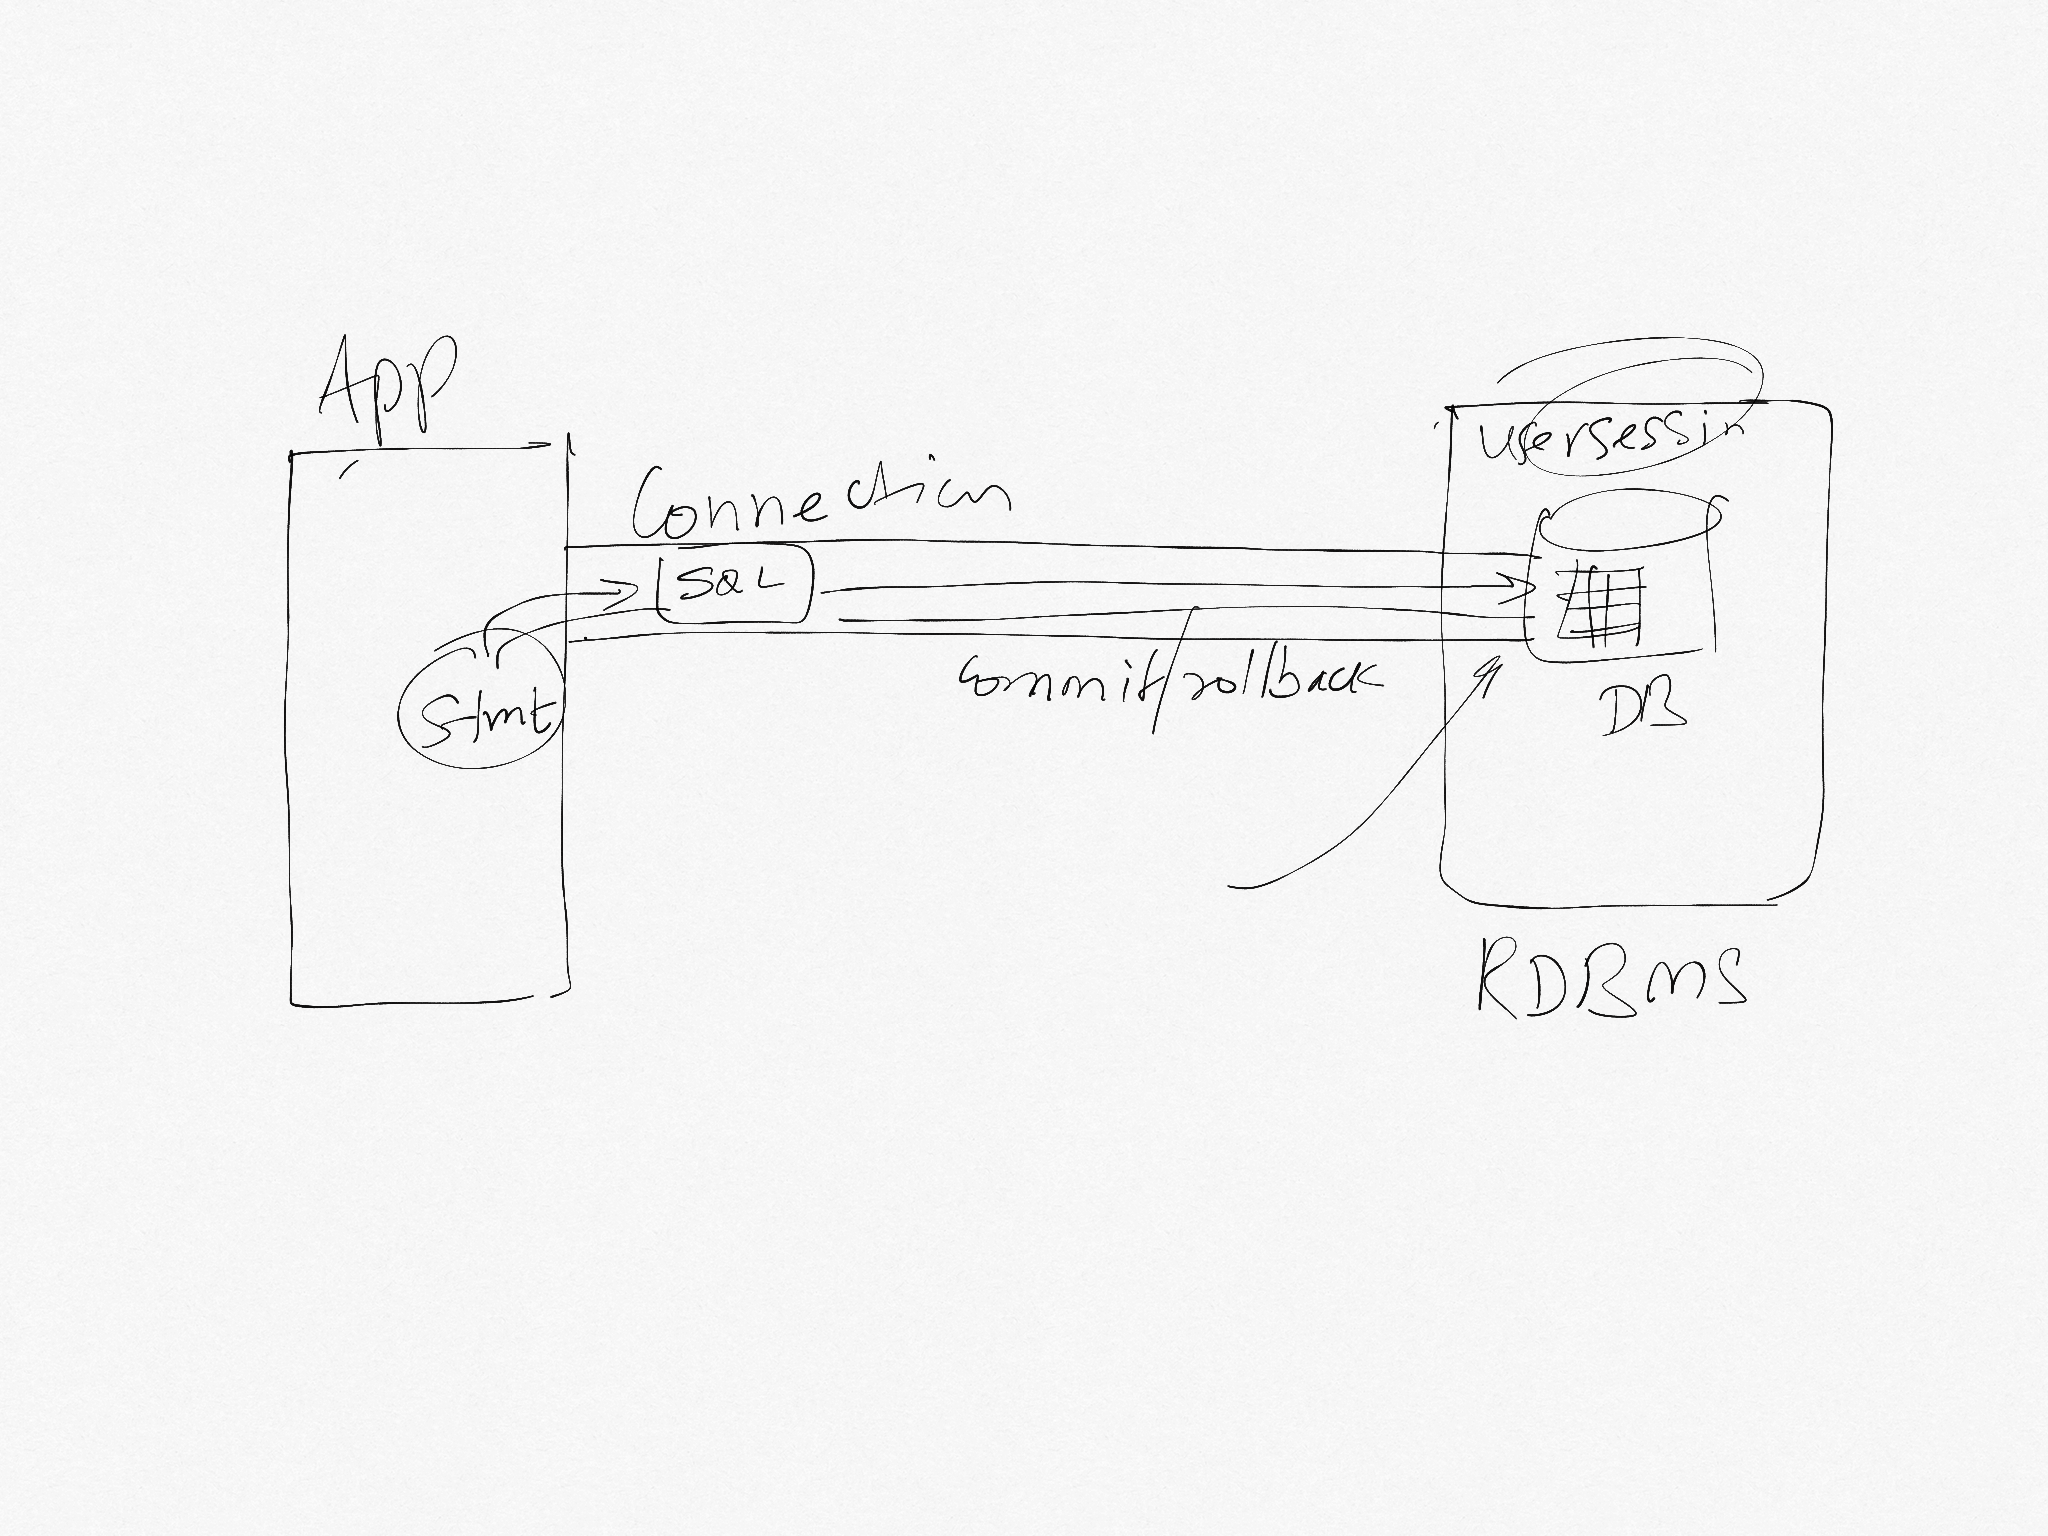 App
Connection
SQL
Stmt
commit/rollback
usersessin
DB
RDBMS